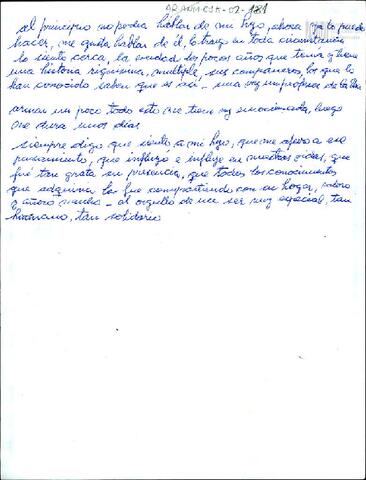 al principio no podia hablar de mi hijo, ahora que lo puedo
hacer, me gusta hablar de él, lo traigo en toda circunstancia
lo siento cerca, la verdad de pocos años que tenia y tiene
una historia riquisima, multiple, sus compañeros, los que lo
han conocido saben que es asi - una vez mi profesor de
armar un poco todo esto me tiene muy emocionada, luego
me dura unos dias
siempre digo que siento a mi hijo, que me refiero a ese
pensamiento, que influyo e influye en nuestras vidas, que
fué tan grata su presencia, que todos los conocimientos
que adquiria los fue compartiendo con su hogar,
y añoro mucho - el orgullo de ser muy especial, tan
humano, tan solidario